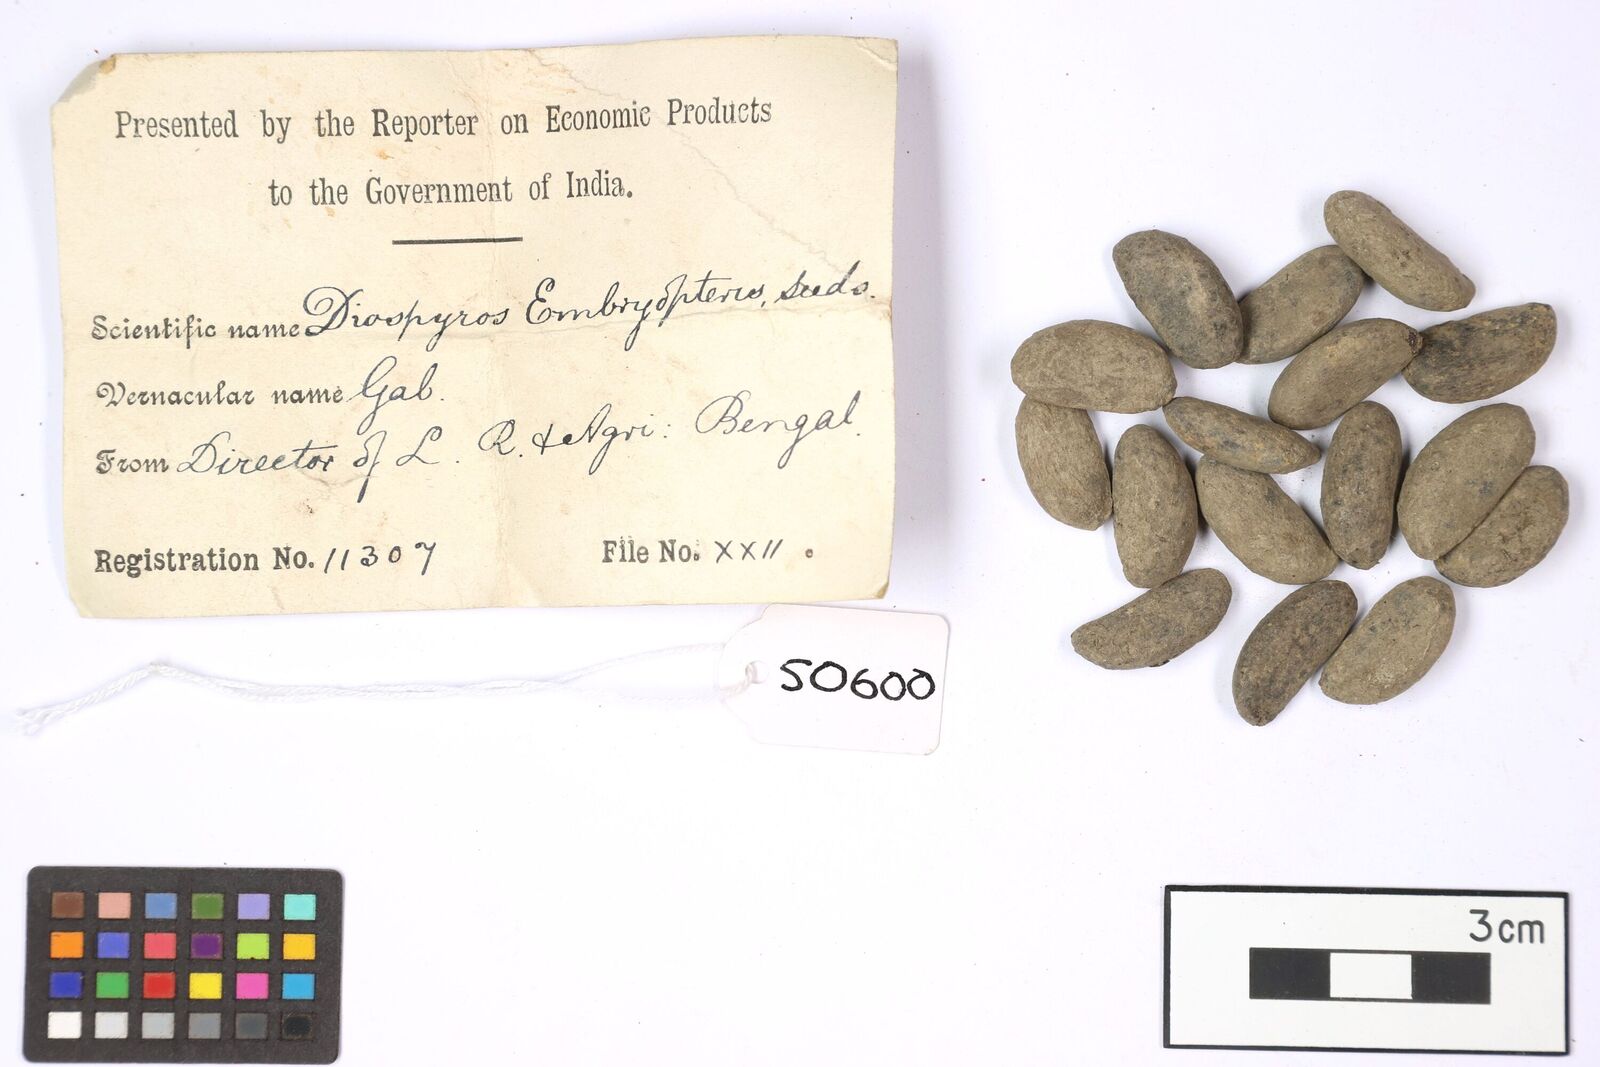 Presented by the Reporter on Economic Products
to the Government of India.
Scientific name Diospyros Embryopteris, seeds.
Vernacular name Gab.
From Director of L. R. & Agri: Bengal.
Registration No. 11307 File No. XXII.
50600
3cm